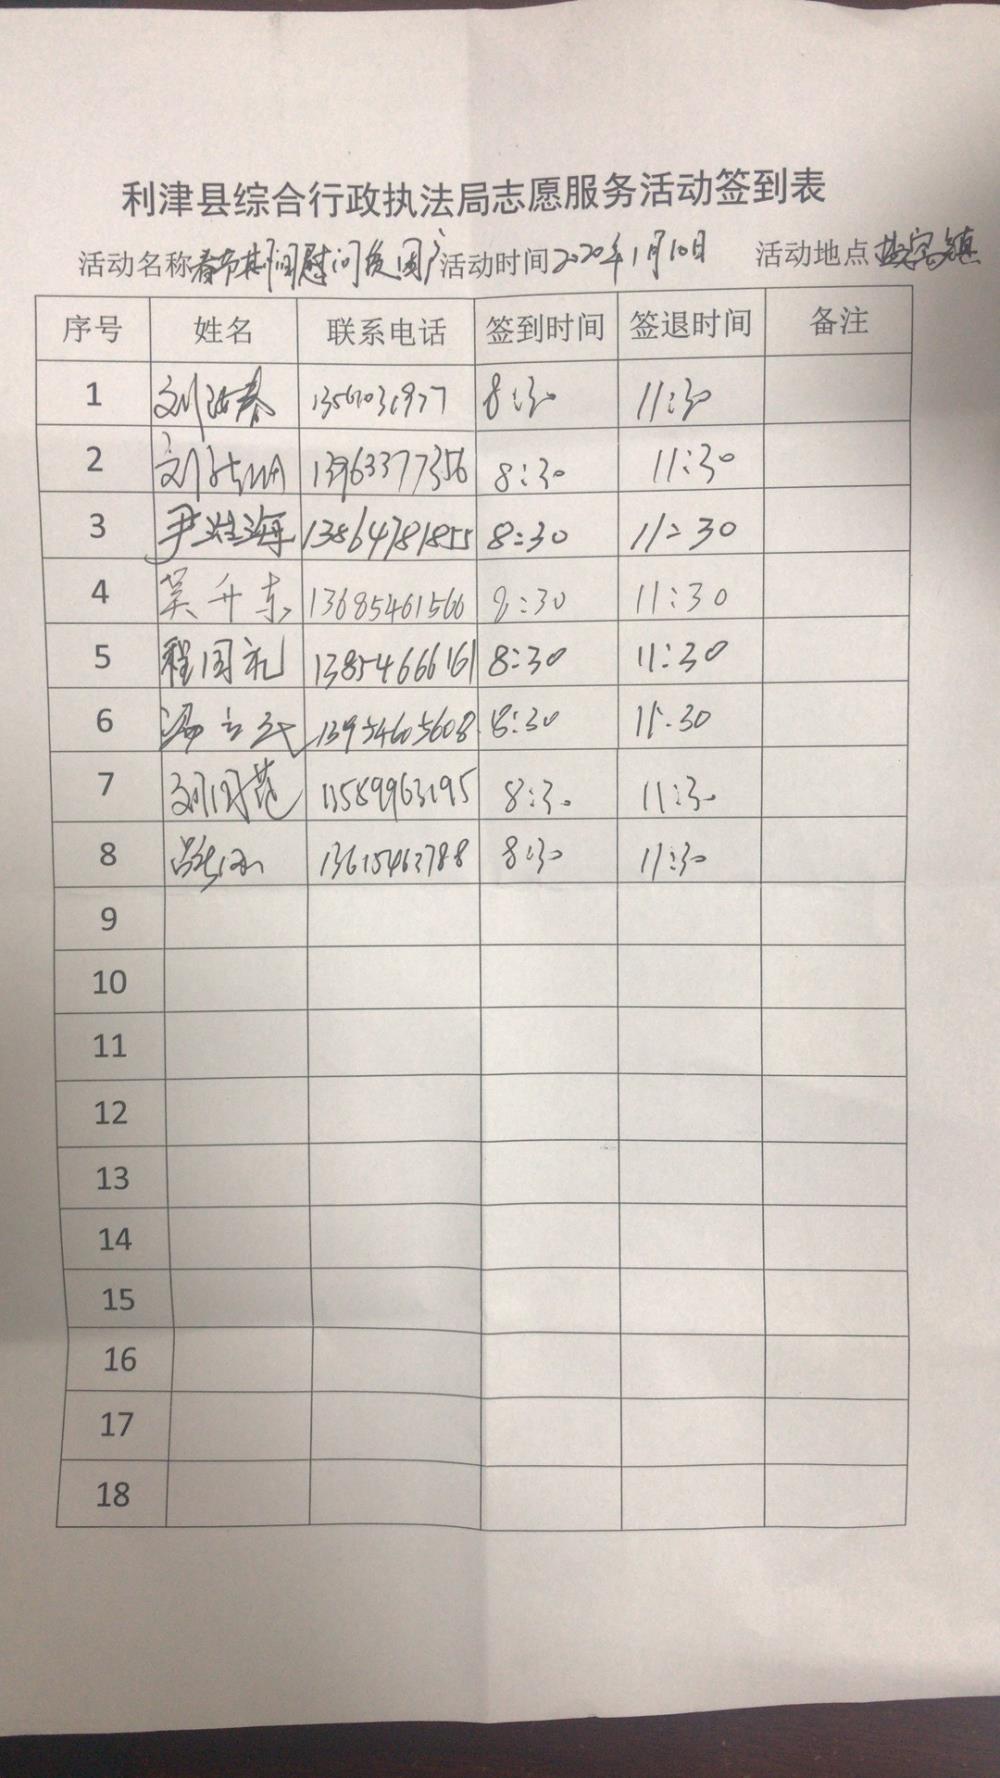 利津县综合行政执法局志愿服务活动签到表
活动名称春节期间慰问贫困户 活动时间2020年1月10日 活动地点盐窝镇
序号 姓名 联系电话 签到时间 签退时间 备注
1 刘 8:30 11:30
2 刘 13963377356 8:30 11:30
3 尹海 13864781855 8:30 11:30
4 吴升东 13685461566 8:30 11:30
5 程国礼 13854666161 8:30 11:30
6 13954605608 8:30 11:30
7 刘国范 8:30 11:30
8 8:30 11:30
9
10
11
12
13
14
15
16
17
18